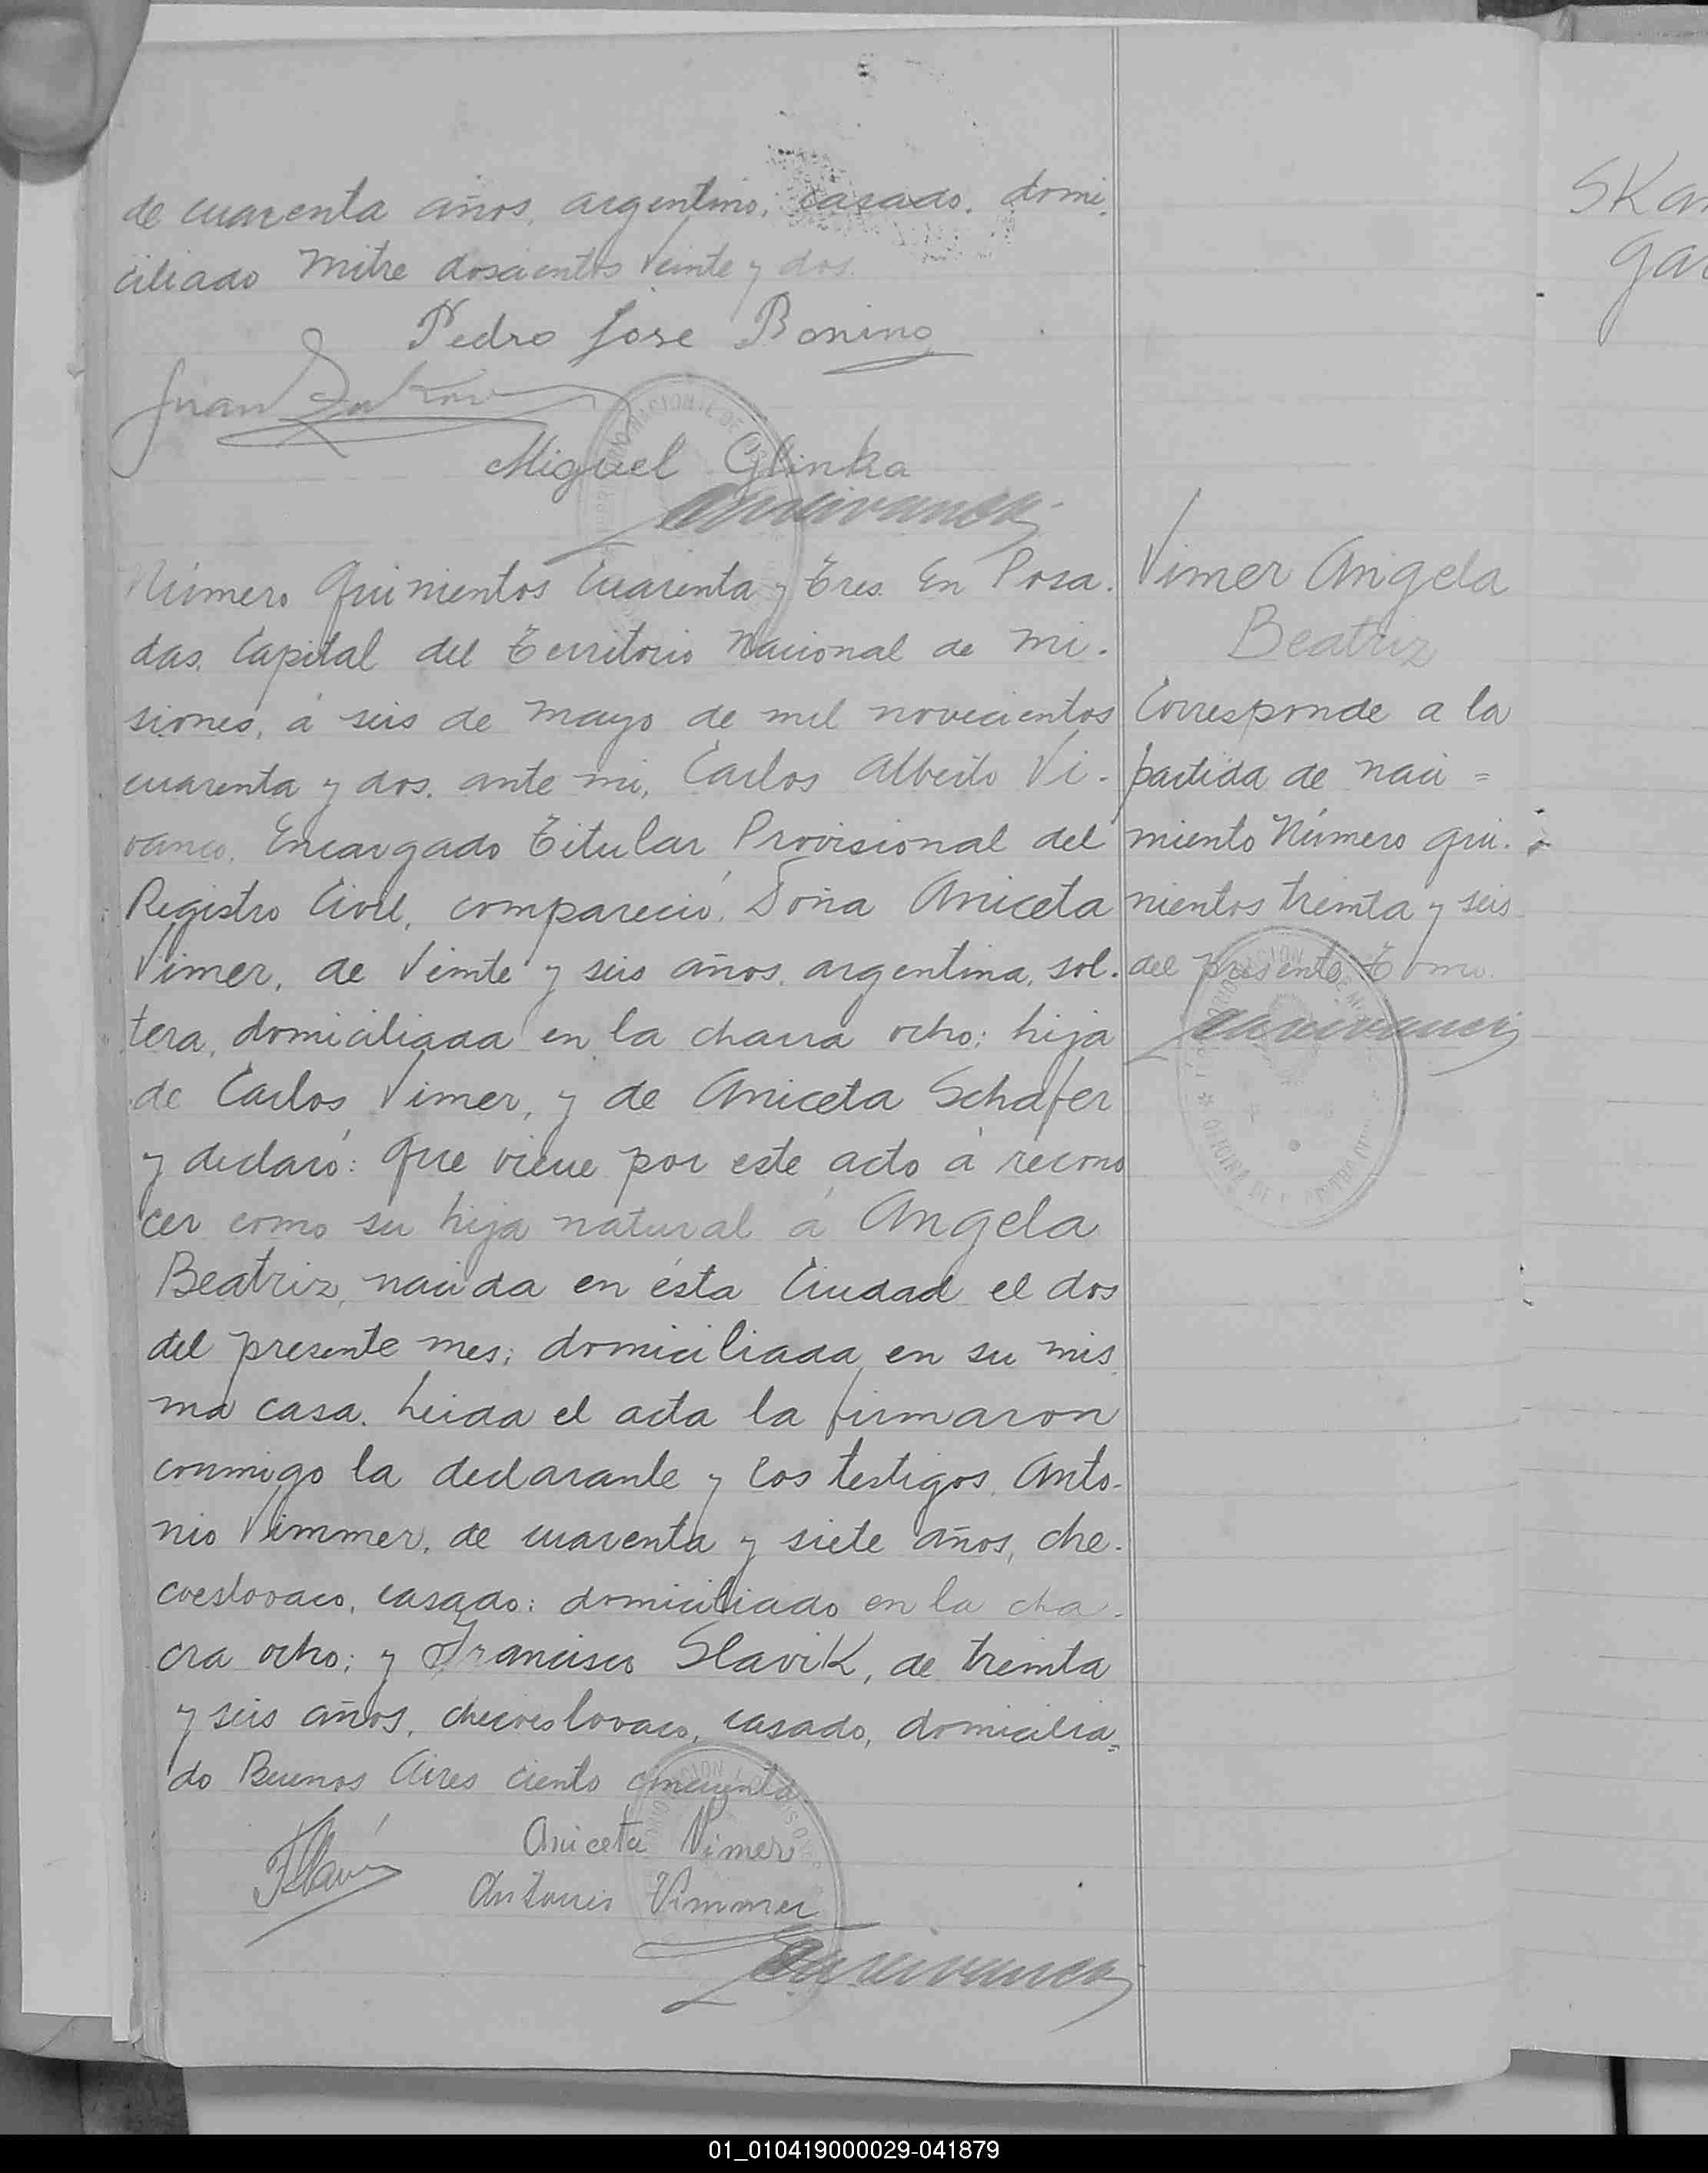 de cuarenta años, argentino, casado, domi-
ciliado Mitre doscientos Veinte y dos.
Pedro José Bonino
Juan
Miguel Glinka
Número Quinientos Cuarenta y Tres. En Posa-
das, Capital del Territorio Nacional de Mi-
siones, á seis de Mayo de mil novecientos
cuarenta y dos, ante mi, Carlos Alberto Vi-
vanco, Encargado Titular Provisional del
Registro Civil, compareció, Doña Aniceta
Vimer, de Veinte y seis años, argentina, sol-
tera, domiciliada en la chacra ocho; hija
de Carlos Vimer, y de Aniceta Schafer
y declaró: Que viene por este acto á recono
cer como su hija natural á Angela
Beatriz, nacida en ésta Ciudad el dos
del presente mes; domiciliada en su mis
ma casa. Leida el acta la firmaron
conmigo la declarante y los testigos, Anto-
nio Vimmer, de cuarenta y siete años, che-
coeslovaco, casado; domiciliado en la cha-
cra ocho; y Francisco Slavik, de treinta
y seis años, checoeslovaco, casado, domicilia=
do Buenos Aires ciento cincuenta.
Aniceta Vimer
Antonio Vimmer
Vimer Angela
Beatriz
Corresponde a la
partida de naci=
miento Número qui-
nientos treinta y seis
del presente Tomo.
SKa
Ga
01_010419000029-041879